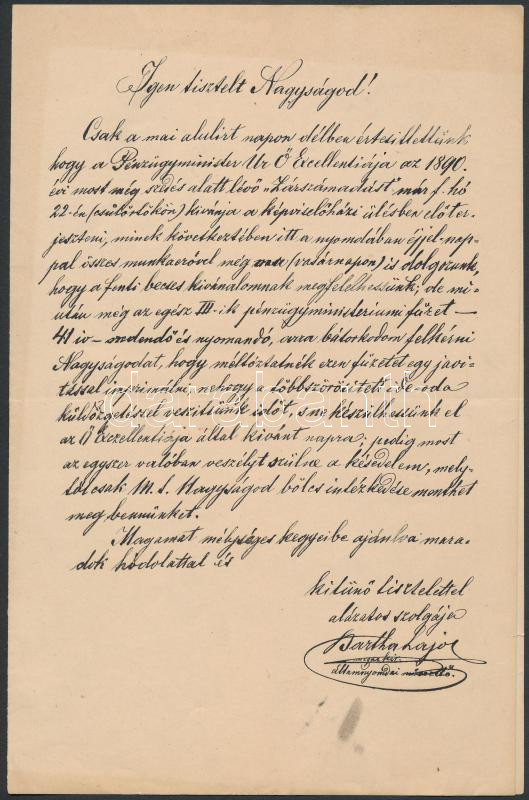 Igen tisztelt Nagyságod!
Csak a mai alulirt napon délben értesittettünk
hogy a Pénzügyminister Ur Ő Excellentiája az 1890.
évi most még szedés alatt lévő „Zárszámadást" már f. hó
22-én (csütörtökön) kivánja a képviselőházi ülésben előter-
jeszteni, minek következtében itt a nyomdában éjjel-nap-
pal összes munkaerővel még ma (vasárnapon) is dolgozunk,
hogy a fenti becses kivánalomnak megfelelhessünk; de mi-
után még az egész III-ik pénzügyministeriumi füzet —
41 iv — szedendő és nyomandó, arra bátorkodom felkérni
Nagyságodat, hogy méltóztatnék ezen füzetet egy javi-
tással imprimálni, nehogy a többszörös ide-oda
küldözgetéssel veszitsünk időt, s ne készülhessünk el
az Ő Excellentiája által kivánt napra; pedig most
az egyszer valóban veszélyt szülne a késedelem, mely-
től csak M. S. Nagyságod bölcs intézkedése menthet
meg bennünket.
Magamat mélységes kegyeibe ajánlva mara-
dok hódolattal és
kitünő tisztelettel
alázatos szolgája
Bartha Lajos
magy. kir.
államnyomdai művezető.
darabanth